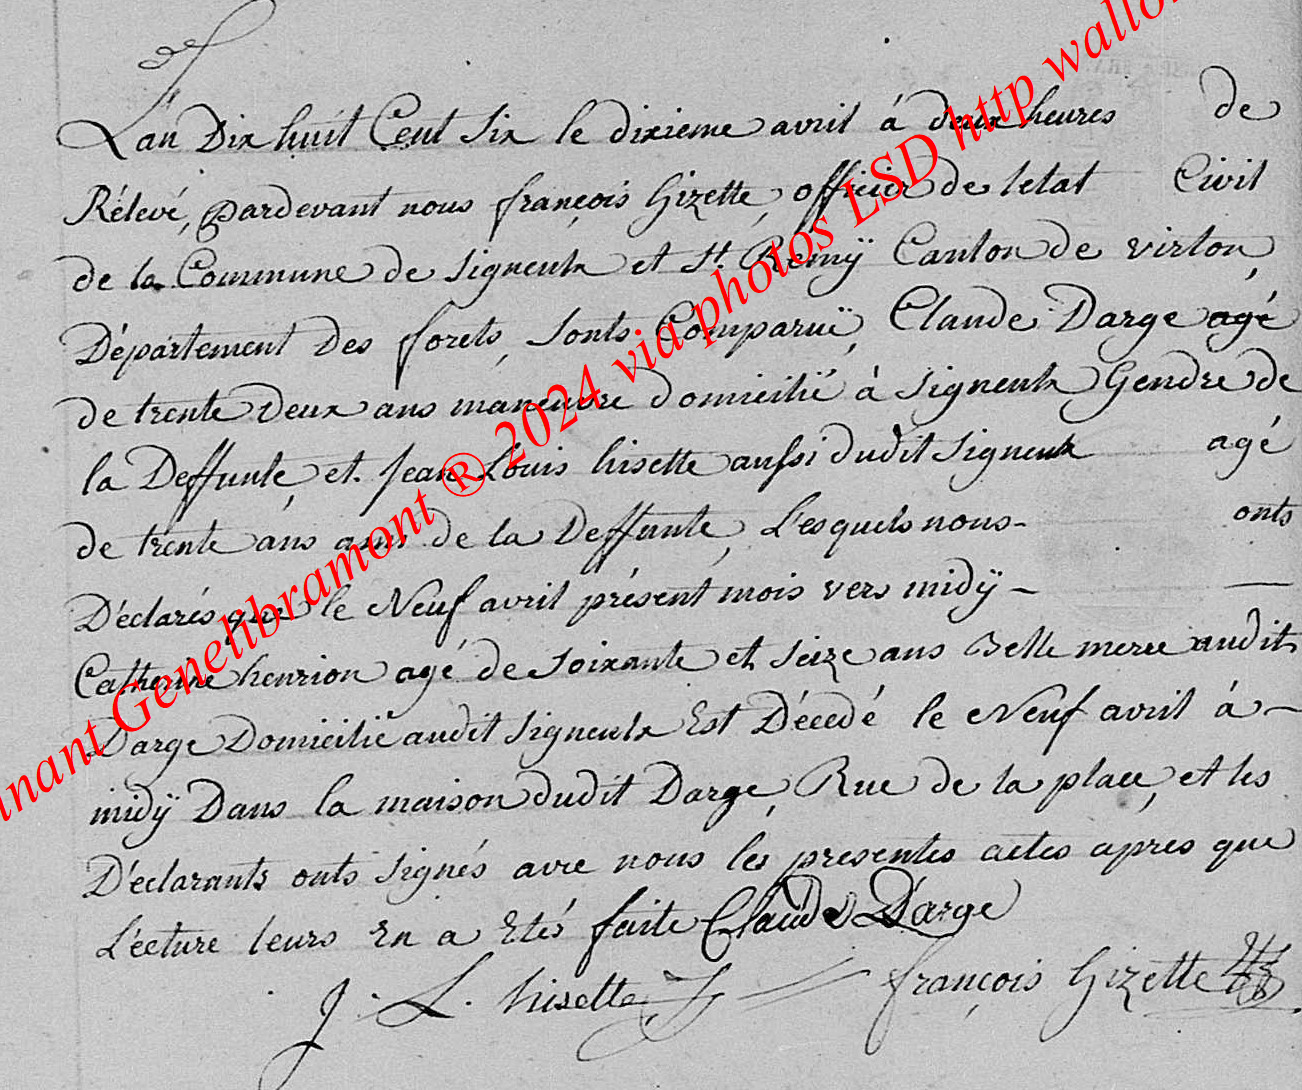 L'an Dix huit Cent six le dixieme avril á deux heures de
Rélevé, pardevant nous françois Gizette, officier de letat Civil
de la Commune de Signeulx et St. Remÿ Canton de virton,
Département des forets, sonts Comparuë, Claude Darge agé
de trente Deux ans maneuvre domicilié à Signeulx Gendre de
la Deffunte, et. Jean Louis hisette aussi dudit Signeulx agé
de trente ans ami de la Deffunte, L'esquels nous- onts
Déclarés que le Neuf avril présent mois vers midÿ -
Catherine henrion agé de soixante et seize ans Belle mere audit
Darge Domicilié audit Signeulx Est Décedé le Neuf avril á -
midÿ Dans la maison dudit Darge, Rue de la place, et les
Déclarants onts signés avec nous les presentes actes apres que
L'ecture leurs En a Etés faite Claude D'arge
J. L. hisette françois Gizette
nant Genelibramont ® 2024 via photos LSD http wallo